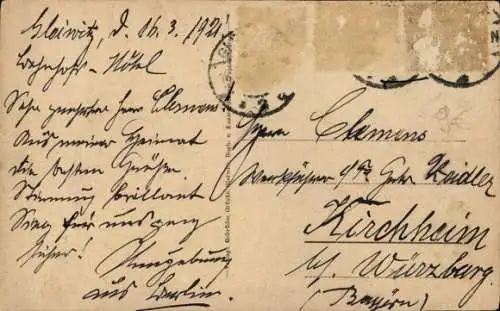 Gleiwitz, d. 16.3.1921
Bahnhofs-Hotel
Sehr geehrter Herr Clemens
Aus meiner Heimat
die besten Grüße.
Stimmung brillant
Sieg für uns ganz
sicher!
aus Berlin.
Herrn Clemens
Werkführer
Kirchheim
b/ Würzburg
(Bayern)